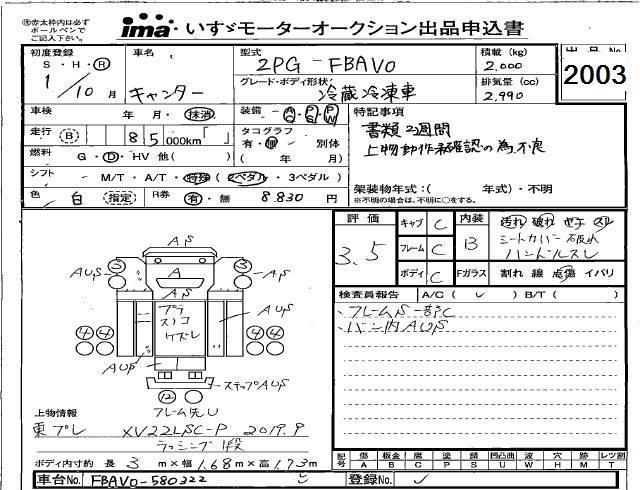 ※赤太枠内は必ず
ボールペンで
ご記入下さい。
ima いすゞモーターオークション出品申込書
出品No
2003
初度登録
S・H・R
1/10月
車名
キャンター
型式
2PG-FBAV0
グレード・ボディ形状
冷蔵冷凍車
積載(kg)
2,000
排気量(cc)
2,990
車検
年・月・抹消
装備
AC PS PW
特記事項
書類2週間
上物動作未確認の為不良
走行
B 85000km「 」
タコグラフ
有・無 別体
( 年 月)
燃料
G・D・HV 他( )
シフト
M/T・A/T・特殊(2ペダル・3ペダル)
架装物年式:( 年式)・不明
※不明の場合は、不明に○をする。
色
白 指定
R券
有・無 8,830円
評価
3.5
キャブ C
フレーム C
ボディ C
内装
B
汚れ 破れ ヤケ スレ
シートカバー破れ
ハンドルスレ
Fガラス 割れ 線 点傷 イバリ
検査員報告 A/C( ✓ ) B/T( )
、フレームS一部C
、バン内AUS
AS
3 3
AUS
AS
A
AS
AUS
プラ
スノコ
ケズレ
AUS
4 4
4 4
AUS
ステップAUS
12
フレーム先U
上物情報
東プレ XV22LSC-P 2019.9
ラッシング1段
ボディ内寸約 長 3 m×幅 1.68 m×高 1.73 m
記号
傷 板金 腐 塗 錆 凹凸曲 波 穴 跡 レツ割
A B C P S U W H M T
車台No. FBAV0-580322
登録No.